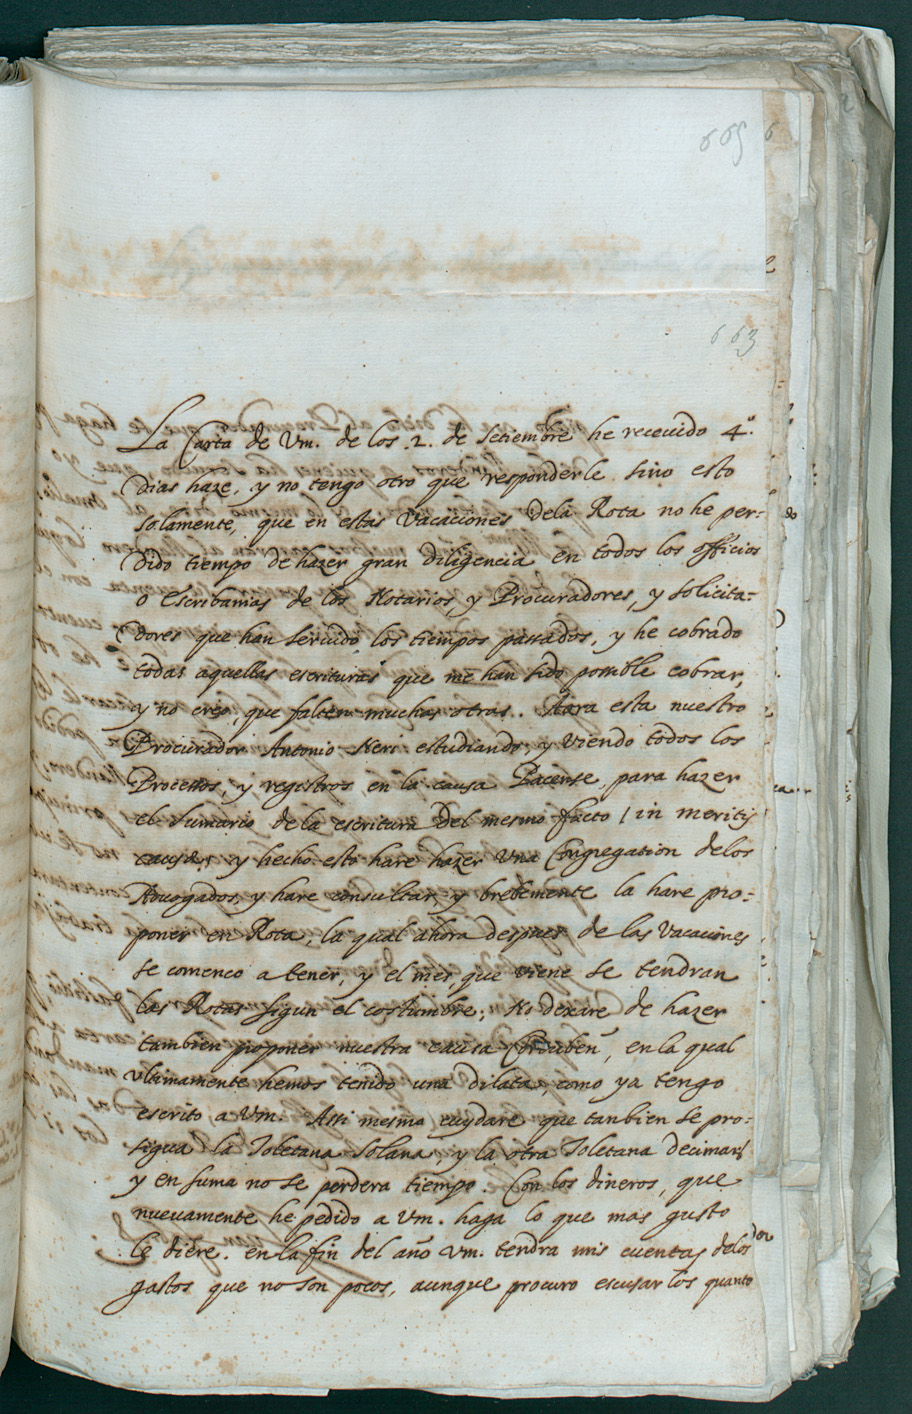 665
663
La Carta de Vm. de los .2. de Setiembre he receuido 4.º
dias haze, y no tengo otro que responderle sino esto
solamente, que en estas Vacaciones dela Rota no he per=
dido tiempo de hazer gran diligencia en todos los officios
o Escribanias de los Notarios, y Procuradores, y solicita=
dores que han seruido los tiempos passados, y he cobrado
todas aquellas escrituras que me han sido possible cobrar,
y no creo, que falten muchas otras. Aora esta nuestro
Procurador Antonio Neri estudiando, y viendo todos los
Processos, y registros en la causa Pacense, para hazer
el sumario de la escritura del mesmo facto / in meritis
causæ, y hecho esto hare hazer Una Congregation delos
Aduogados, y hare consultar, y brebemente la hare pro=
poner en Rota, la qual ahora despues de las Vacaciones
se comenco a tener, y el mes, que viene se tendran
las Rotas sigun el costumbre; No dexare de hazer
tambien proponer nuestra causa Cordubeñ, en la qual
ultimamente hemos tenido una dilata, como ya tengo
escrito a Vm. Assi mesmo cuydare que tanbien se pro=
sigua la Toletana Solana, y la otra Toletana decimarũ
y en suma no se perdera tiempo. Con los dineros, que
nueuamente he pedido a Vm. haga lo que mas gusto
le diere. en la fin del año Vm. tendra mis cuentas delos
gastos que no son pocos, aunque procuro escusarlos quanto